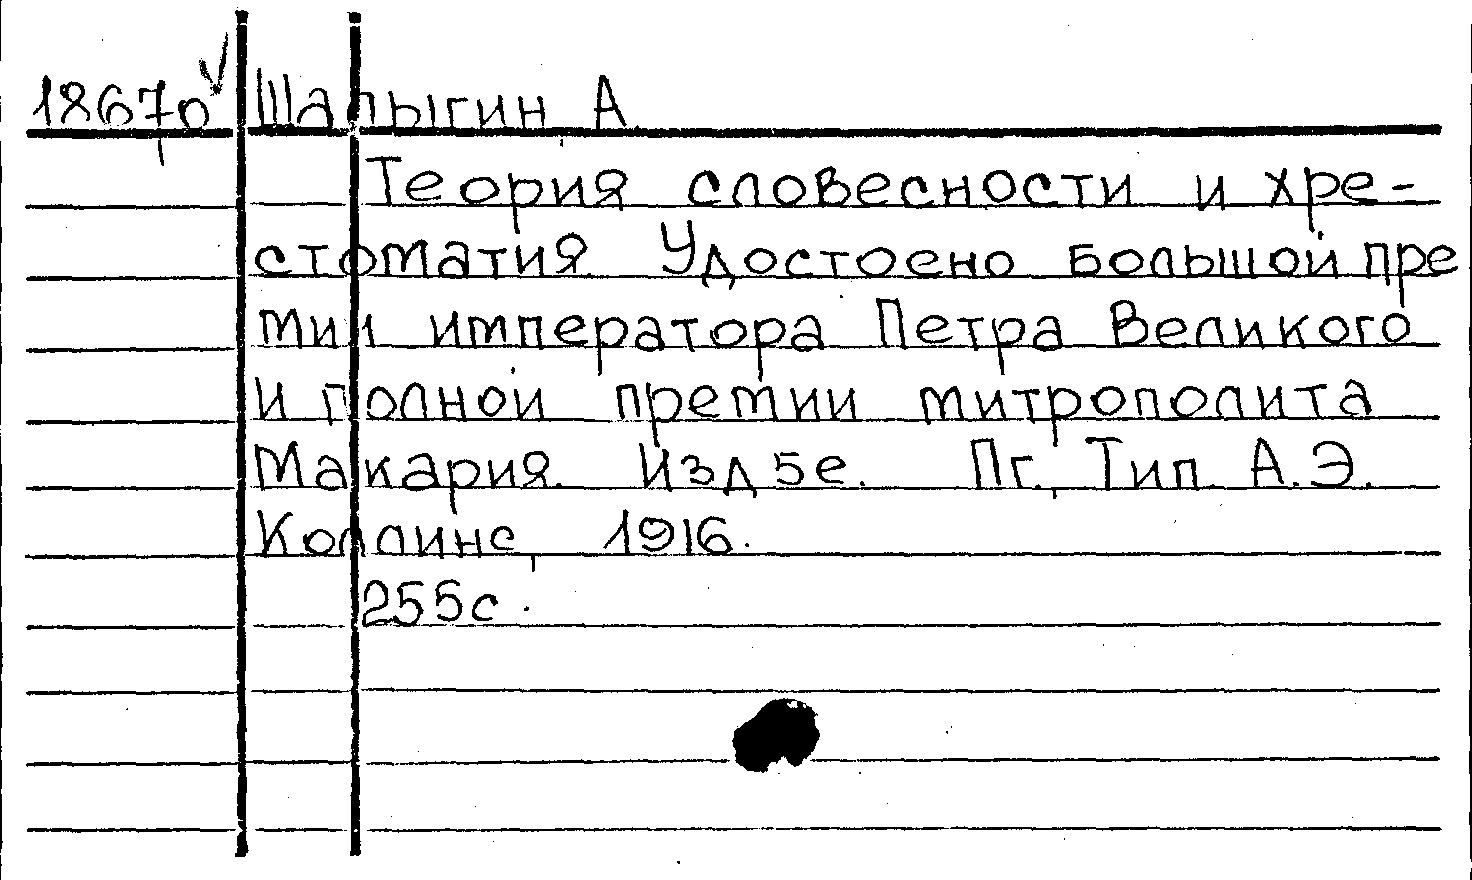 18670 Шалыгин А
Теория словесности и хре-
стоматия Удостоено большой пре
мии императора Петра Великого
и полной премии митрополита
Макария. Изд 5е. Пг., Тип. А.Э.
Коллинс, 1916.
255с.